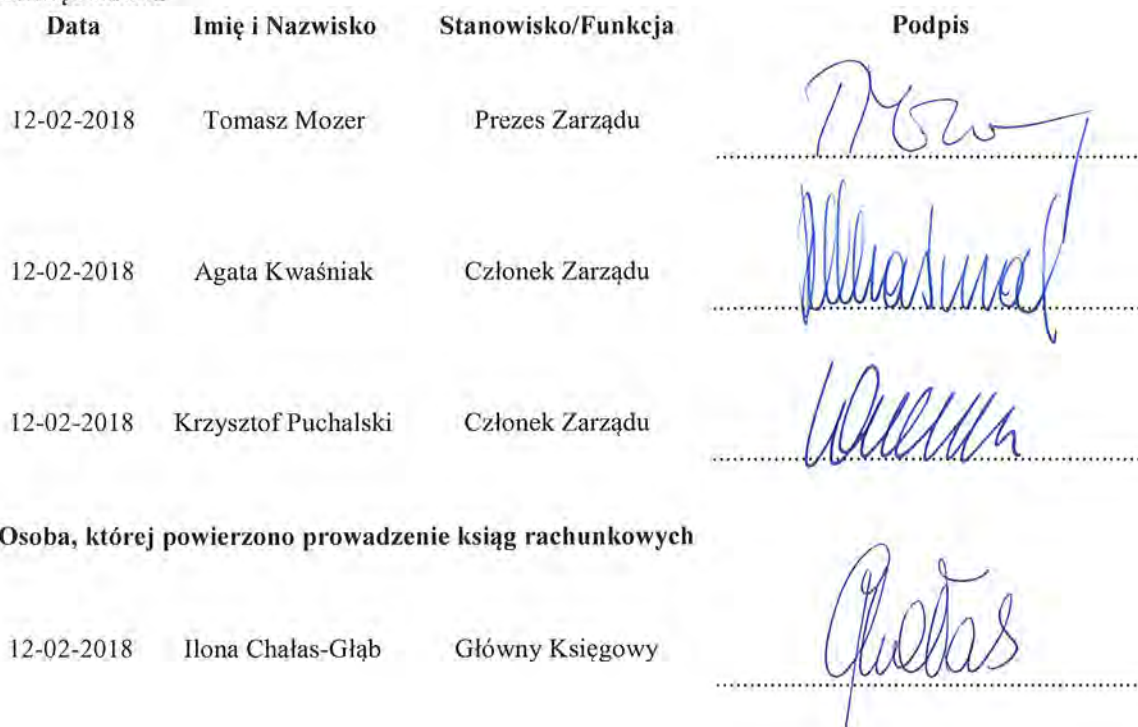 Data Imię i Nazwisko Stanowisko/Funkcja Podpis
12-02-2018 Tomasz Mozer Prezes Zarządu
12-02-2018 Agata Kwaśniak Członek Zarządu
12-02-2018 Krzysztof Puchalski Członek Zarządu
Osoba, której powierzono prowadzenie ksiąg rachunkowych
12-02-2018 Ilona Chałas-Głąb Główny Księgowy